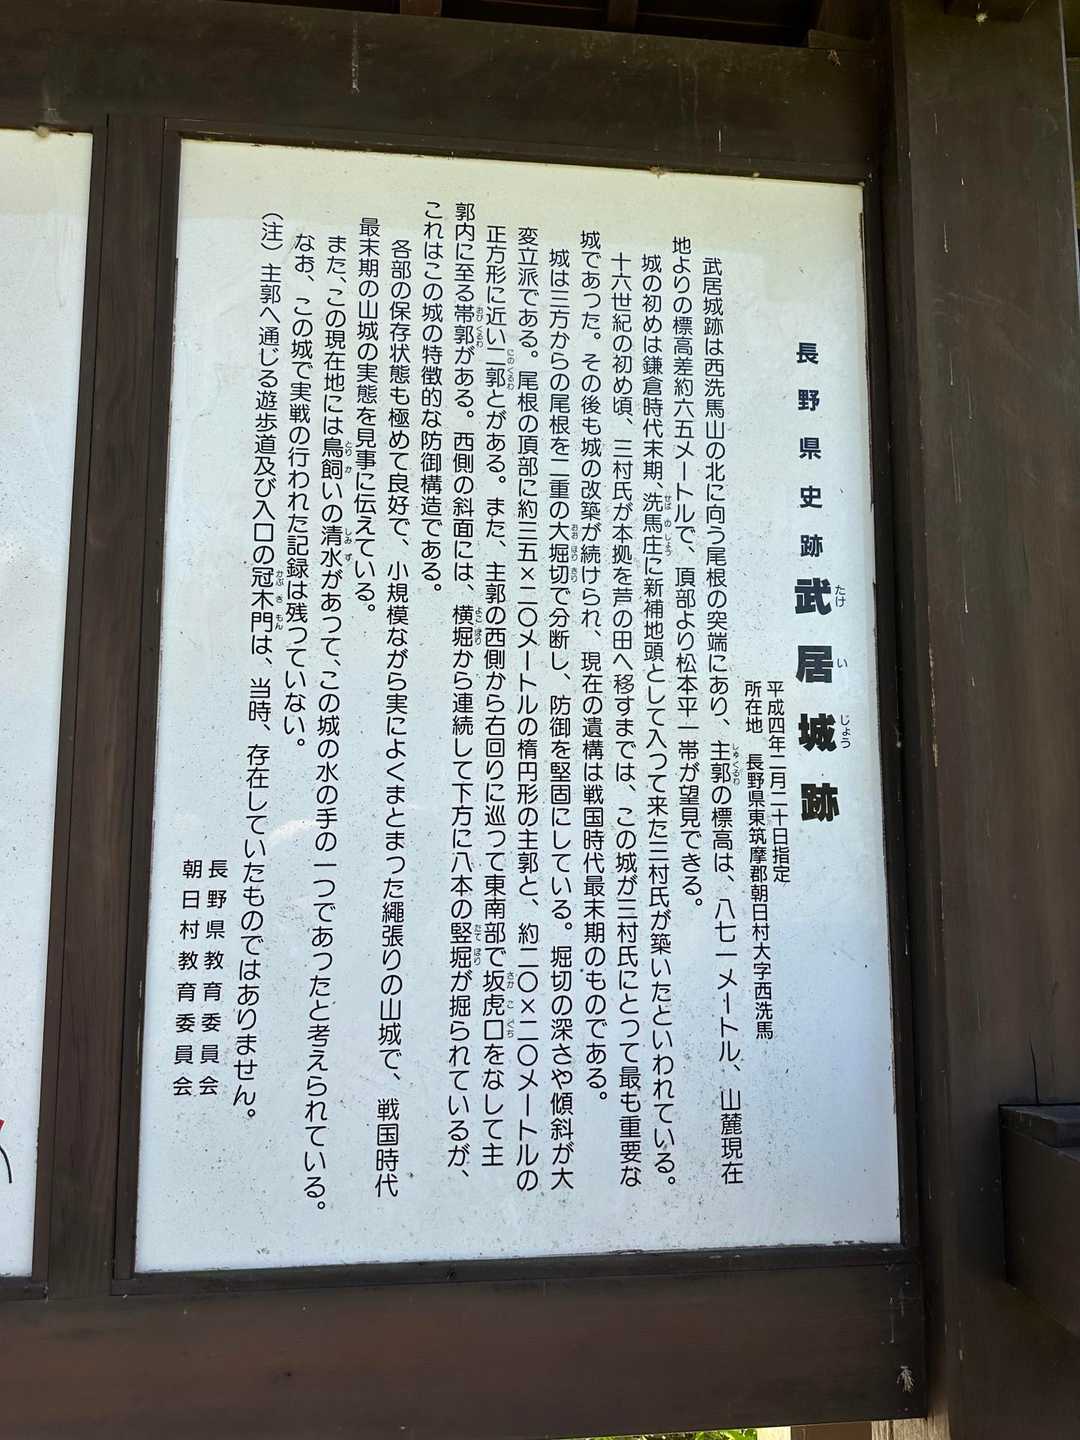 長野県史跡 武居城跡
平成四年二月二十日指定
所在地 長野県東筑摩郡朝日村大字西洗馬
武居城跡は西洗馬山の北に向う尾根の突端にあり、主郭の標高は、八七一メートル、山麓現在
地よりの標高差約六五メートルで、頂部より松本平一帯が望見できる。
城の初めは鎌倉時代末期、洗馬庄に新補地頭として入って来た三村氏が築いたといわれている。
十六世紀の初め頃、三村氏が本拠を芦の田へ移すまでは、この城が三村氏にとって最も重要な
城であった。その後も城の改築が続けられ、現在の遺構は戦国時代最末期のものである。
城は三方からの尾根を二重の大堀切で分断し、防御を堅固にしている。堀切の深さや傾斜が大
変立派である。尾根の頂部に約三五×二〇メートルの楕円形の主郭と、約二〇×二〇メートルの
正方形に近い二郭とがある。また、主郭の西側から右回りに巡って東南部で坂虎口をなして主
郭内に至る帯郭がある。西側の斜面には、横堀から連続して下方に八本の竪堀が掘られているが、
これはこの城の特徴的な防御構造である。
各部の保存状態も極めて良好で、小規模ながら実によくまとまった縄張りの山城で、戦国時代
最末期の山城の実態を見事に伝えている。
また、この現在地には鳥飼いの清水があって、この城の水の手の一つであったと考えられている。
なお、この城で実戦の行われた記録は残っていない。
（注）主郭へ通じる遊歩道及び入口の冠木門は、当時、存在していたものではありません。
長野県教育委員会
朝日村教育委員会